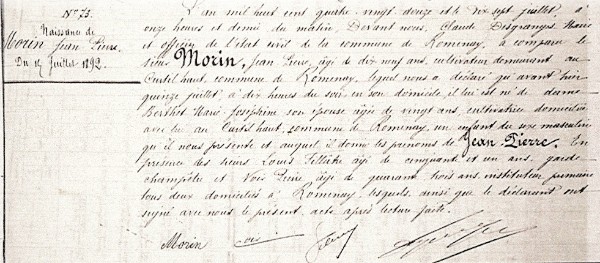 N° 73.
Naissance de
Morin Jean Pierre.
Du 15 Juillet 1892.
L'an mil huit cent quatre vingt douze et le dix sept juillet, à
onze heures et demie du matin, Devant nous, Claude Desgranges Maire
et officier de l'état civil de la commune de Romenay, a comparu le
sieur Morin, Jean Pierre, âgé de dix neuf ans, cultivateur demeurant au
Curtil haut, commune de Romenay, lequel nous a déclaré qu'avant hier
quinze juillet, à dix heures du soir en son domicile, il lui est né de dame
Berthot Marie Joséphine son épouse âgée de vingt ans, cultivatrice domiciliée
avec lui au Curtil haut, commune de Romenay, un enfant du sexe masculin
qu'il nous présente et auquel il donne les prénoms de Jean Pierre. En
présence des sieurs Louis âgé de cinquante et un ans, garde
champêtre et Pierre âgé de quarante trois ans, instituteur primaire
tous deux domiciliés à Romenay, lesquels, ainsi que le déclarant ont
signé avec nous le présent acte après lecture faite.
Morin